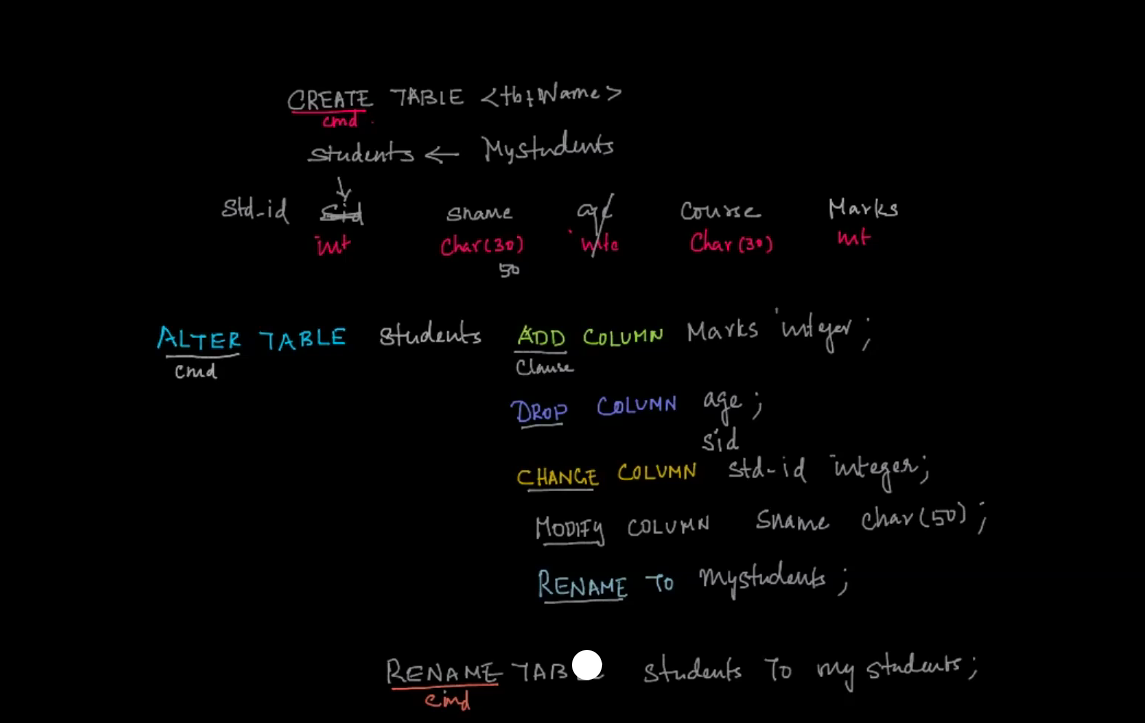 CREATE TABLE <tblName>
cmd
students ← Mystudents
Std-id sid sname age Course Marks
int Char(30) Char(30) int
50
ALTER TABLE students ADD COLUMN Marks integer ;
cmd Clause
DROP COLUMN age ;
sid
CHANGE COLUMN std-id integer;
MODIFY COLUMN sname char(50) ;
RENAME TO mystudents ;
RENAME students To my students;
cmd